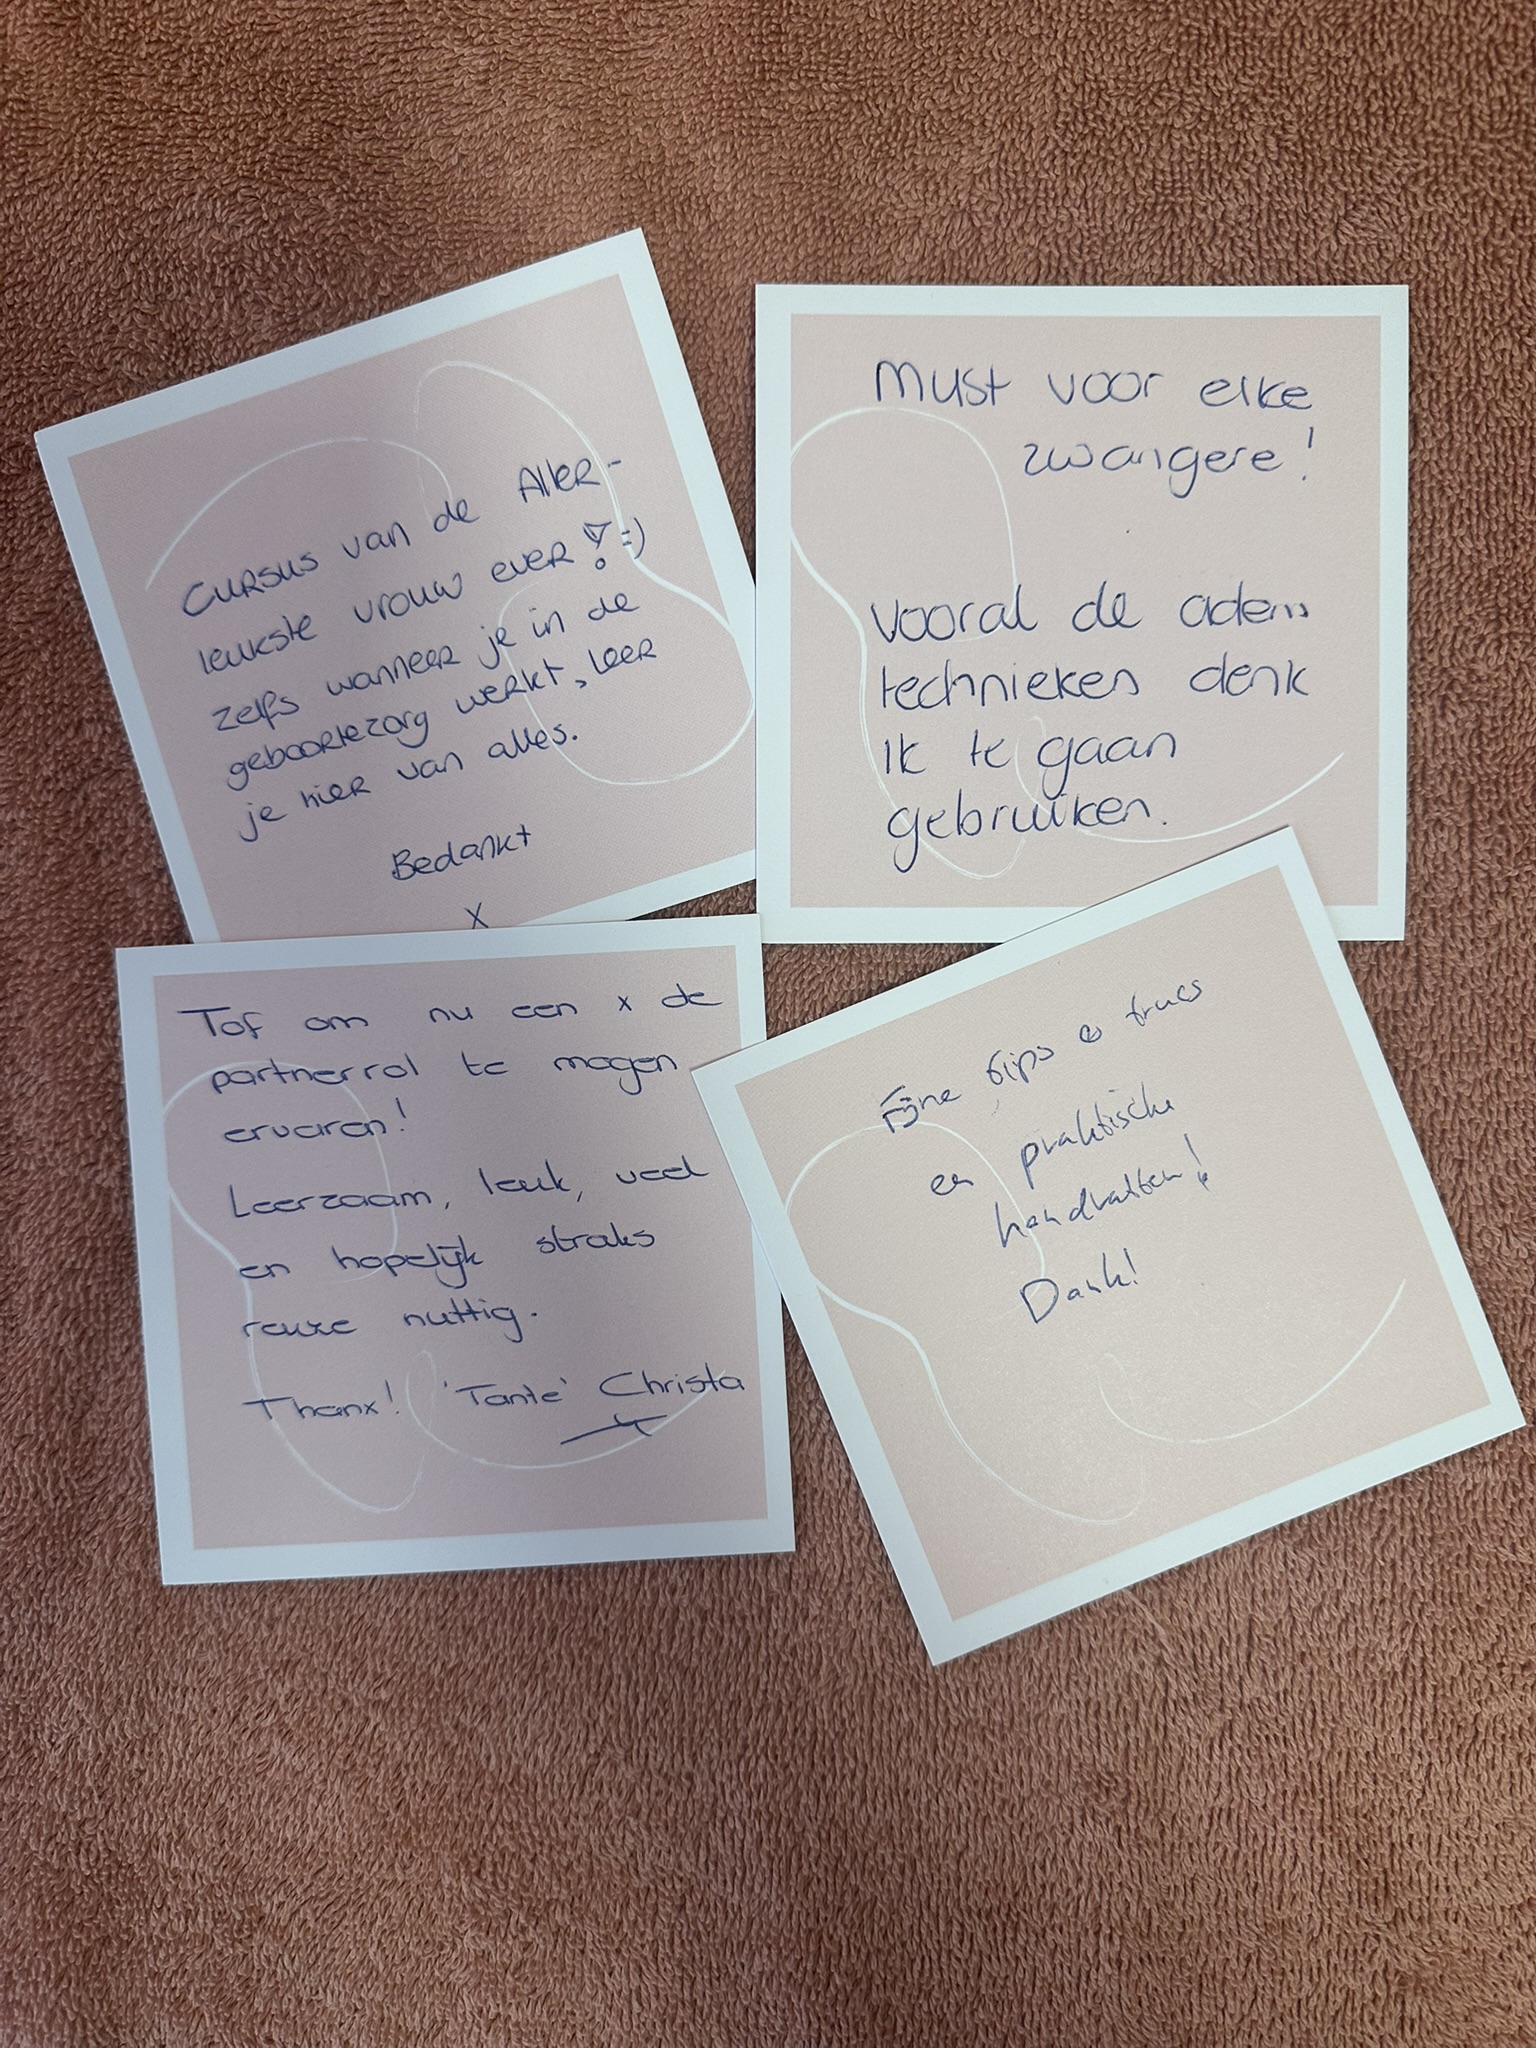 Cursus van de Aller-
leukste vrouw ever! :)
zelfs wanneer je in de
geboortezorg werkt, leer
je hier van alles.
Bedankt
X
Must voor elke
zwangere!
vooral de adem
technieken denk
ik te gaan
gebruiken.
Tof om nu een x de
partnerrol te mogen
ervaren!
Leerzaam, leuk, veel
en hopelijk straks
reuze nuttig.
Thanx! 'Tante' Christa
Fijne tips & trucs
en praktische
handvatten!
Dank!